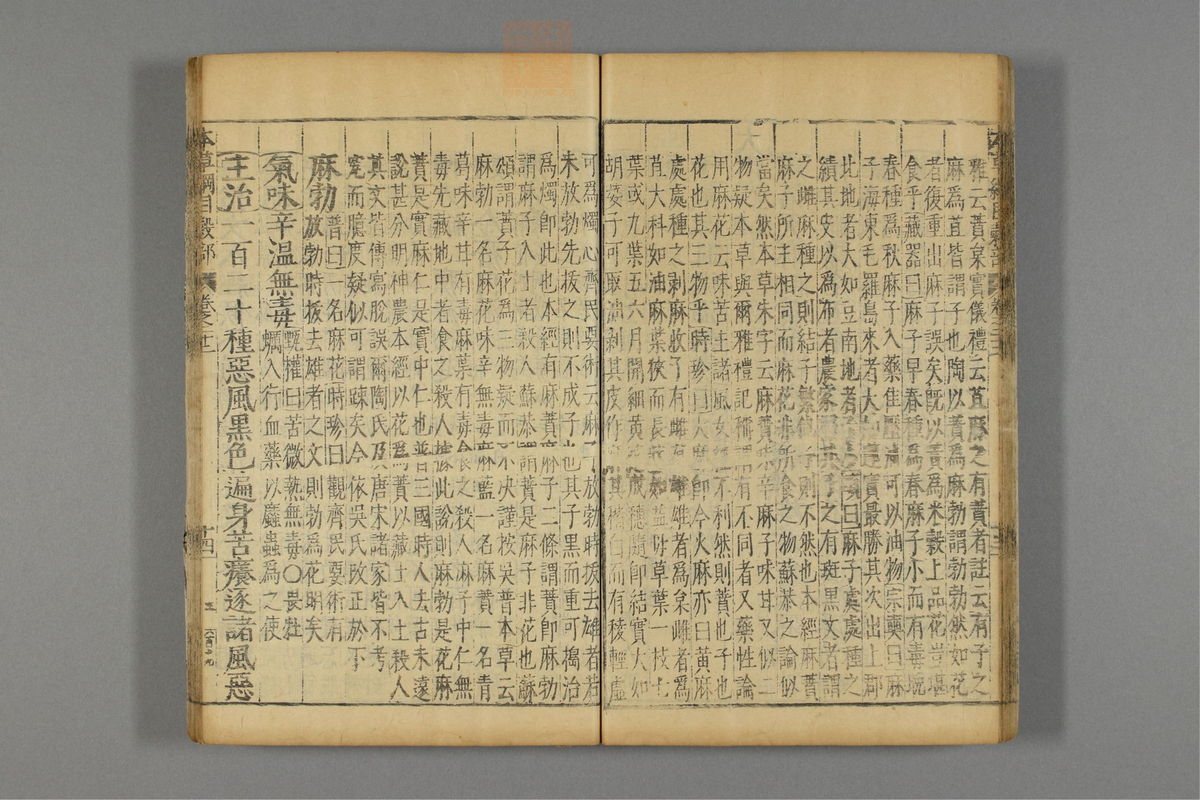 雅云蕡枲實儀禮云苴麻之有蕡者註云有子之
麻為苴皆謂子也陶以蕡為麻勃謂勃勃然如花
者復重出麻子誤矣既以蕡為米穀上品花豈堪
食乎藏器曰麻子早春種為春麻子小而有毒晚
春種為秋麻子入藥佳壓油可以油物宗奭曰麻
子海東毛羅島來者大如蓮實最勝其次出上郡
北地者大如豆南地者子小頌曰麻子處處種之
績其皮以為布者農家擇其子之有斑黑文者謂
之雌麻種之則結子繁他子則不然也本經麻蕡
麻子所主相同而麻花非所食之物蘇恭之論似
當矣然本草朱字云麻蕡味辛麻子味甘又似二
物疑本草與爾雅禮記稱謂有不同者又藥性論
用麻花云味苦主諸風女經不利然則蕡也子也
花也其三物乎時珍曰大麻即今火麻亦曰黃麻
處處種之剥麻收子有雌有雄雄者為枲雌者為
苴大科如油麻葉狹而長狀如益母草葉一枝七
葉或九葉五六月開細黄花成穗隨即結實大如
胡荽子可取油剥其皮作麻其稭白而有稜輕虛
可為燭心齊民要術云麻子放勃時拔去雄者若
未放勃先拔之則不成子也其子黑而重可搗治
為燭即此也本經有麻蕡麻子二條謂蕡即麻勃
謂麻子入土者殺人蘇恭謂蕡是麻子非花也蘇
頌謂蕡子花為三物疑而不决謹按吳普本草云
麻勃一名麻花味辛無毒麻藍一名麻蕡一名青
葛味辛甘有毒麻葉有毒食之殺人麻子中仁無
毒先藏地中者食之殺人據此說則麻勃是花麻
蕡是實麻仁是實中仁也普三國時人去古未遠
說甚分明神農本經以花為蕡以藏土入土殺人
其文皆傳寫脫誤爾陶氏及唐宋諸家皆不考
究而臆度疑似可謂疎矣今依吳氏改正於下
麻勃 普曰一名麻花時珍曰觀齊民要術有
放勃時拔去雄者之文則勃為花明矣
氣味辛溫無毒 甄權曰苦微熱無毒○畏牡
蠣入行血藥以䗪蟲為之使
主治一百二十種惡風黑色遍身苦癢逐諸風惡
本草綱目穀部 卷之廿二 十四